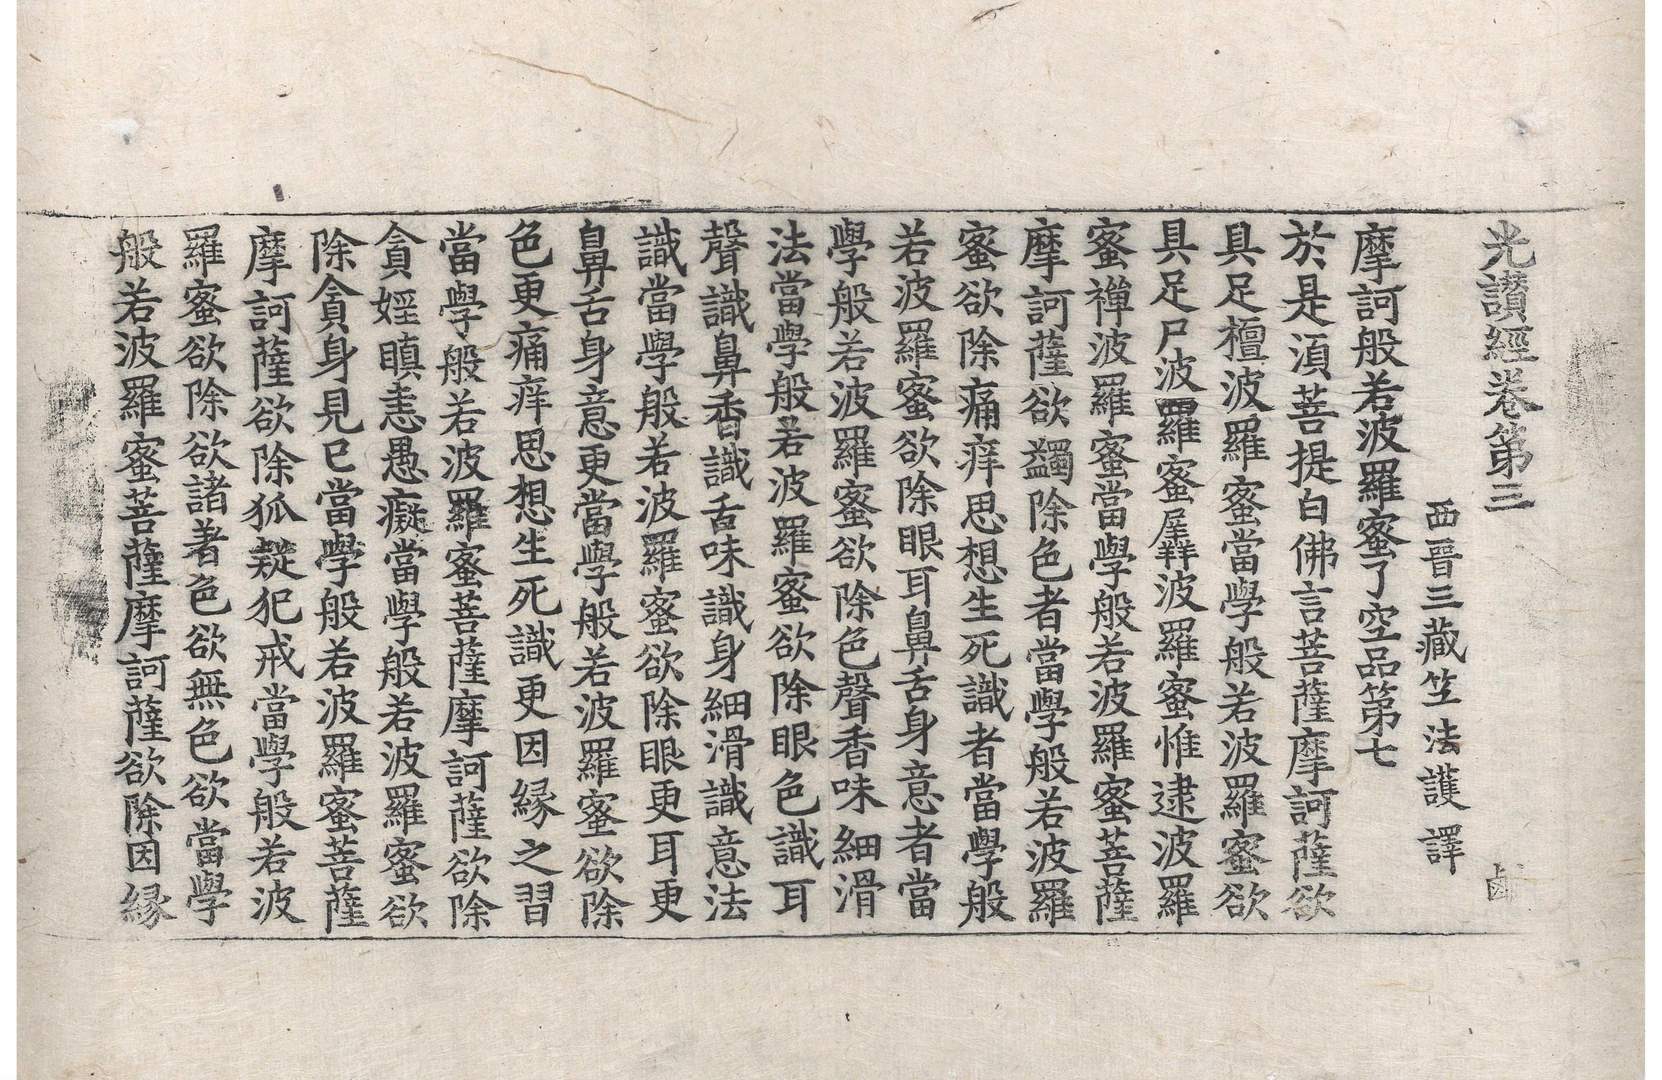 光讚經卷第三
鹹
西晉三藏竺法護譯
摩訶般若波羅蜜了空品第七
於是湏菩提白佛言菩薩摩訶薩欲
具足檀波羅蜜當學般若波羅蜜欲
具足尸波羅蜜羼波羅蜜惟逮波羅
蜜禪波羅蜜當學般若波羅蜜菩薩
摩訶薩欲蠲除色者當學般若波羅
蜜欲除痛痒思想生死識者當學般
若波羅蜜欲除眼耳鼻舌身意者當
學般若波羅蜜欲除色聲香味細滑
法當學般若波羅蜜欲除眼色識耳
聲識鼻香識舌味識身細滑識意法
識當學般若波羅蜜欲除眼更耳更
鼻舌身意更當學般若波羅蜜欲除
色更痛痒思想生死識更因縁之習
當學般若波羅蜜菩薩摩訶薩欲除
貪婬瞋恚愚癡當學般若波羅蜜欲
除貪身見已當學般若波羅蜜菩薩
摩訶薩欲除狐疑犯戒當學般若波
羅蜜欲除欲諸著色欲無色欲當學
般若波羅蜜菩薩摩訶薩欲除因縁